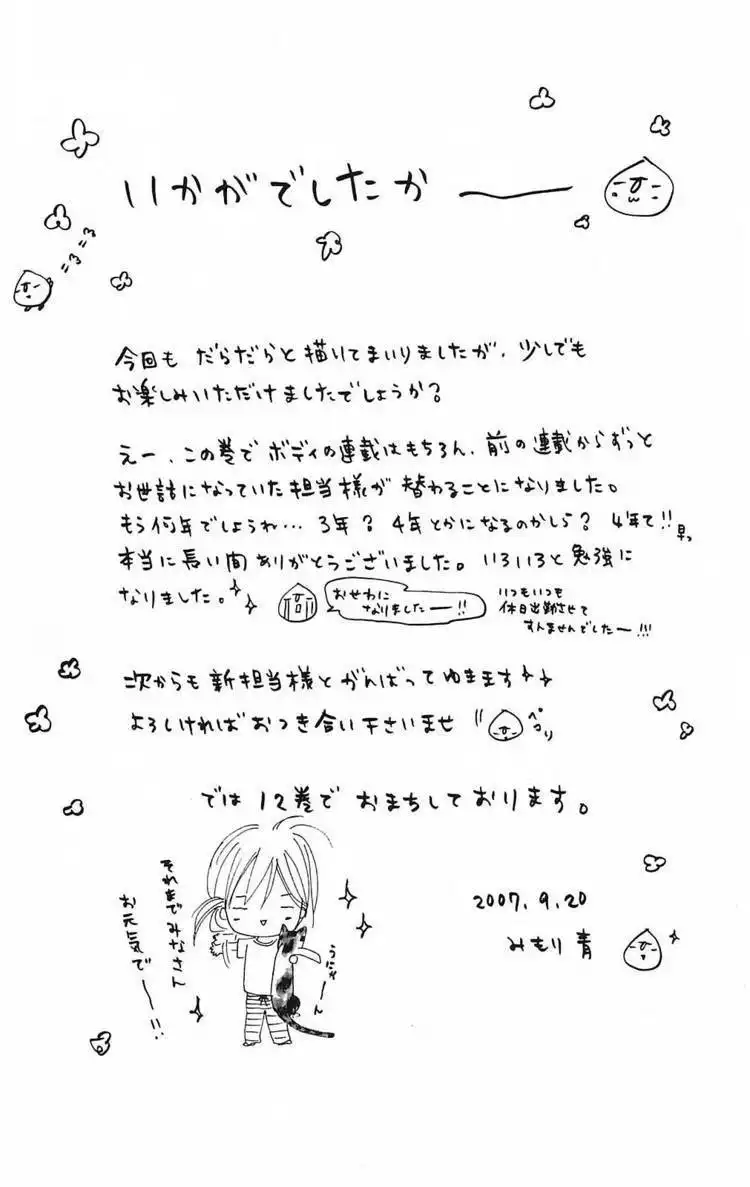 いかがでしたかー
=3=3
今回も だらだらと描いてまいりましたが、少しでも
お楽しみいただけましたでしょうか?
えー、この巻でボディの連載はもちろん、前の連載からずっと
お世話になっていた担当様が 替わることになりました。
もう何年でしょうね… 3年? 4年とかになるのかしら? 4年て!!早っ
本当に長い間ありがとうございました。いろいろと勉強に
なりました。
おせわに
なりましたー!!
いつもいつも
休日出勤させて
すんませんでしたー!!!
次からも新担当様とがんばってゆきます
よろしければおつき合い下さいませ
ペコリ
では12巻で おまちしております。
それまでみなさん
お元気でー!!
うにゃーん
2007.9.20
みもり青